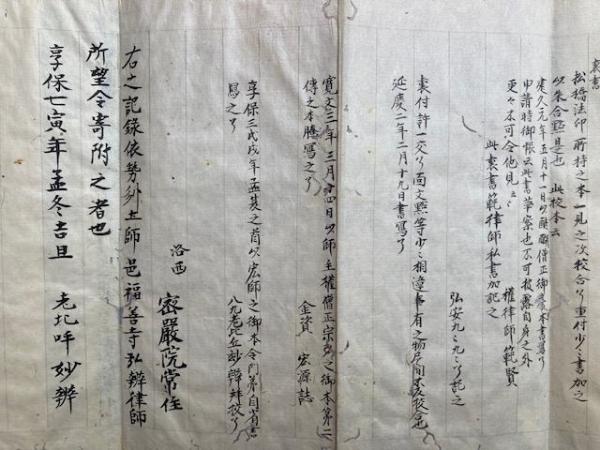 裏書
松橋法印所持之本一見之次校合了重付少々書加之
以朱合点是也 此校本云
建久元年五月十一日以醍醐僧正御本書写了
申請時御帳云此書華察也不可披露自身之外
更々不可令他見之 権律師範賢
此裏書範律師私書加記之
弘安九々九々了記之
裏付許一交了面文点等少々相違事有之
延慶二年二月十九日書写了
寛文三年三月十四日以師主権僧正宗之御本第二
伝之本謄写之了
金資 宏源誌
享保三戊戌年孟夏之首以宏師之御本令門弟自省書
写之了 八九老比丘妙弁交了
洛西 密厳院常住
右之記録依勢列土師邑福善寺弘弁律師
所望令寄附之者也
享保七寅年孟冬吉旦 老比丘妙弁